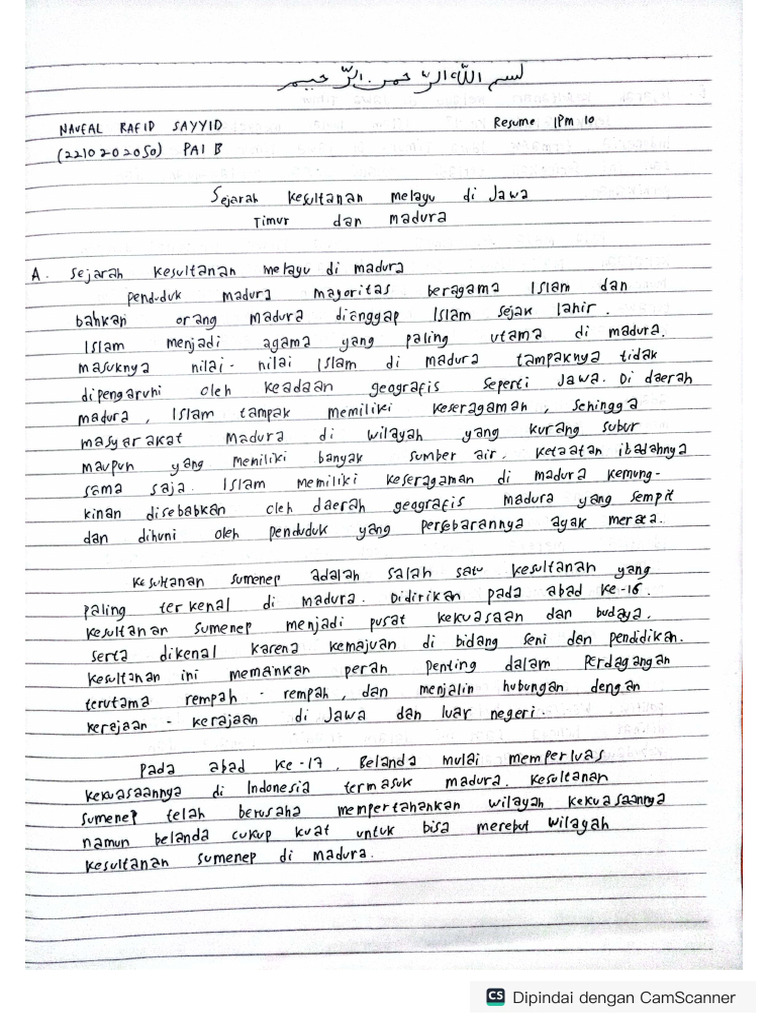 بسم الله الرّحمن الرّحيم
NAUFAL RAFID SAYYID Resume IPM 10
(2210202050) PAI B
Sejarah kesultanan melayu di Jawa
Timur dan madura
A. Sejarah kesultanan melayu di madura
penduduk madura mayoritas beragama Islam dan
bahkan orang madura dianggap Islam sejak lahir.
Islam menjadi agama yang paling utama di madura.
masuknya nilai-nilai Islam di madura tampaknya tidak
dipengaruhi oleh keadaan geografis seperti Jawa. Di daerah
madura, Islam tampak memiliki keseragaman, sehingga
masyarakat madura di wilayah yang kurang subur
maupun yang memiliki banyak sumber air, ketaatan ibadahnya
sama saja. Islam memiliki keseragaman di madura kemung-
kinan disebabkan oleh daerah geografis madura yang sempit
dan dihuni oleh penduduk yang persebarannya agak merata.
kesultanan sumenep adalah salah satu kesultanan yang
paling terkenal di madura. Didirikan pada abad ke-16.
kesultanan sumenep menjadi pusat kekuasaan dan budaya,
serta dikenal karena kemajuan di bidang seni dan pendidikan.
kesultanan ini memainkan peran penting dalam perdagangan
terutama rempah-rempah, dan menjalin hubungan dengan
kerajaan-kerajaan di Jawa dan luar negeri.
pada abad ke-17, Belanda mulai memperluas
kekuasaannya di Indonesia termasuk madura. kesultanan
sumenep telah berusaha mempertahankan wilayah kekuasaannya
namun belanda cukup kuat untuk bisa merebut wilayah
kesultanan sumenep di madura.
CS Dipindai dengan CamScanner